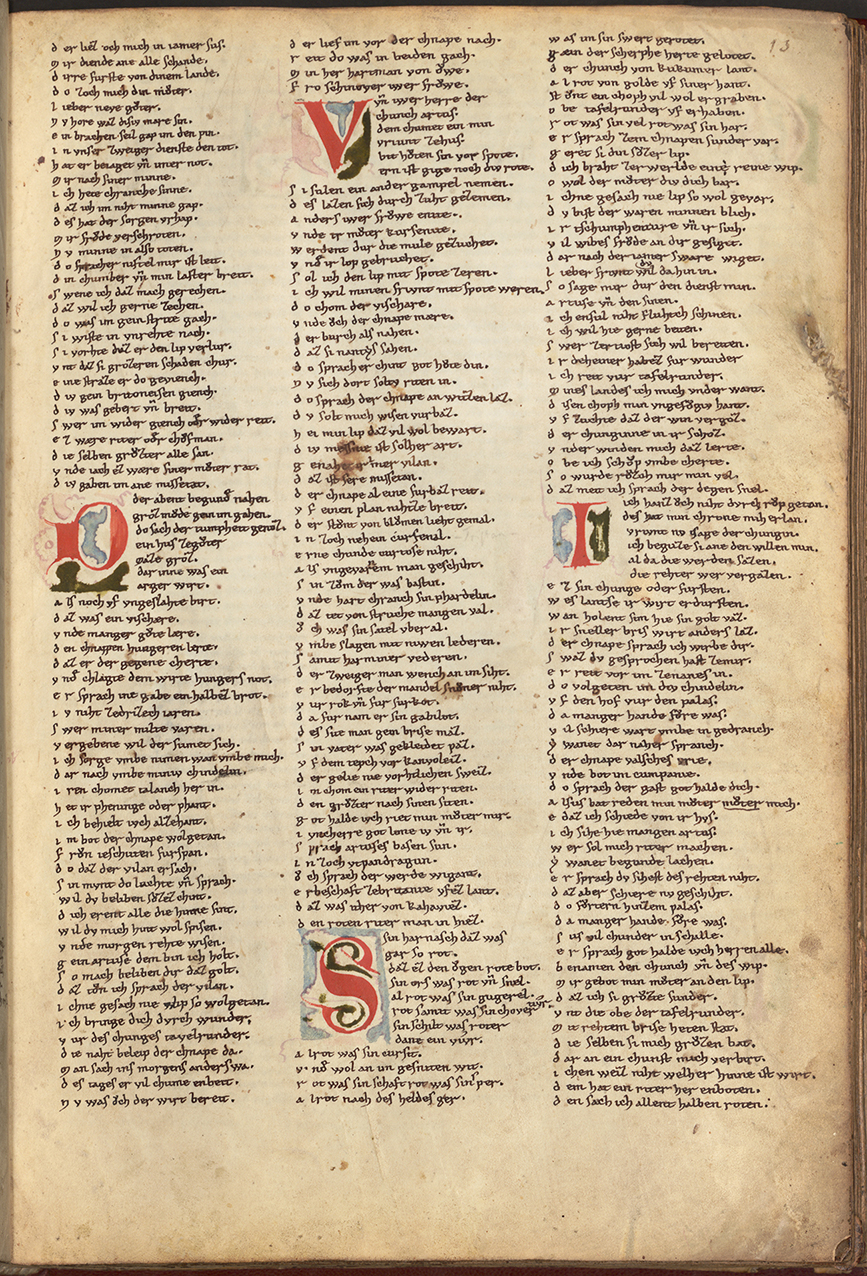 13
d er liez och mich in iamer sus.
m ir diende ane alle schande.
d irre furste von dinem lande.
d o zoch mich din mͦter.
l ieber neve gͦter.
n v hore waz disiv mare sin.
e in brachen seil gap im den pin.
i n vnser zweiger dienste den tot.
h at er beiaget vñ imer not.
m ir nach siner minne.
i ch hete chranche sinne.
d az ich im niht minne gap.
d es hat der sorgen vrhap.
m ir frͦde verschroten.
n v minne in also toten.
d o nistel mir ist leit.
d in chumber vñ min laster breit.
s wenne ich daz mach gerechen.
d az wil ich gerne zechen.
d o was im gein strite gach.
s i wiste in vnrehte nach.
s i vorhte daz er den lip verlur.
v nt daz si grozeren schaden chur.
e ine straze er do geviench.
d iv gein britoneisen giench.
d iv was gebert vñ breit.
s wer im wider giench oder wider reit.
e z wære riter oder chͦfman.
d ie selben grͦzter alle san.
v nde iach ez wære siner mͦter rat.
d iv gaben im ane missetat.
der abent begunde nahen
grͦz mͦde gein im gahen.
do sach der tumpheit genoz.
ein hus ze gͦter
maze groz.
dar inne was ein
arger wirt.
a ls noch vf vngeslahte birt.
d az was ein vischære.
v nde manger gͦte lære.
d en chnappen hungeren lerte.
d az er der gegene cherte.
v nde chlagte dem wirte hungers not.
e r sprach ine gabe ein halbez brot.
i v niht ze drizech iaren.
s wer miner milte varen.
v ergebene wil der sumet sich.
i ch sorge vmbe nimen wan vmbe mich.
d ar nach vmbe miniv chindelin.
i ren chomet talanch her in.
h et ir phenninge oder phant.
i ch behielt ivch allehant.
i m bot der chnape wolgetan.
f rͦn ieschuten furspan.
d o daz der vilan ersach.
s in mvnt do lachte vñ sprach.
w il dv beliben sͦzez chint.
d ich erent alle die hinne sint.
w il dv mich hint wol spisen.
v nde morgen rehte wisen.
g ein artuse dem bin ich holt.
s o mach beliben dir daz golt.
d az tͦn ich sprach der vilan.
i chne gesach nie lip so wolgetan.
i ch bringe dich dvrch wunder.
v ur des chunges tavelrunder.
d ie naht beleip der chnape da.
m an sach ins morgens anderswa.
d es tages er vil chume enbeit.
n v was ͦch der wirt bereit.
d er lief im vor der chnape nach.
r eit do was in beiden gach.
m in her hartman von ͦwe.
f ro schinover iwer frͦwe.
vñ iwer herre der
chunch artus.
dem chumet ein min
vriunt ze hus.
bit hͦten sin vor spote.
ern ist gige noch div rote.
s i sulen ein ander gampel nemen.
d es lazen sich durch zuht gezemen.
a nders iwer frͦwe enite.
v nde ir mͦter karsenite.
w erdent dur die mule gezuchet.
v nde ir lop gebruchet.
s ol ich den lip mit spote zeren.
i ch wil minen frivnt mit spote weren.
d o chom der vischare.
v nde ͦch der chnape mære.
i er burch als nahen.
d az si nantys sahen.
d o sprach er chint got hͦte din.
n v sich dort solt dv riten in.
d o sprach der chnape an witzen laz.
d v solt mich wisen vurbaz.
h ei min lip daz vil wol bewart.
d iv messnie ist solher art.
g enahet ir imer vilan.
d az ist sere missetan.
d er chnape al eine furbaz reit.
v f einen plan niht ze breit.
d er stͦnt von blͦmen lieht gemal.
i n zoch nehein curfenal.
e rne chunde curtosie niht.
a ls vngevarem man geschiht.
s in zom der was bastin.
v nde hart chranch sin phardelin.
d az tet von struche mangen val.
ͦ ch was sin satel vber al.
v mbe slagen mit niwen lederen.
s amit harmine vederen.
d er zweiger man wench an im siht.
e r bedorfte der mandel snͦre niht.
v ur rok vñ fur surkot.
d a fur nam er sin gabilot.
d es site man gein brise maz.
s in vater was gekleidet paz.
v f dem tepch vor kanvoleiz.
d er gelie nie vorhtlichen sweiz.
i m chom ein riter wider riten.
d en grͦzter nach sinen siten.
g ot halde ivch riet min mͦter mir.
i vncherre got lone iv vñ ir.
s prach artuses basen sun.
i n zoch vtpandragun.
ͦ ch sprach der werde wigant.
e rbeschaft ze britanie vf ez lant.
d az was ither von kahaviez.
d en roten riter man in hiez.
sin harnasch daz was
gar so rot.
daz ez den ͦgen rote bot.
sin ors was rot vñ snel.
al rot was sin gugerel.
rot samit was sin chovertiur.
sin schilt was roter
dane ein viur.
a l rot was sin cursit.
v nde wol an im gesniten wit.
r ot was sin schaft rot was sin sper.
a l rot nach des heldes ger.
w as im sin swert gerotet.
g ein der scherphe herte gelotet.
d er chunch von kukumer lant.
a l rot von golde vf siner hant.
st ͦnt ein choph vil wol ergraben.
o be tafelrunder vf erhaben.
r ot was sin vel rot was sin har.
e r sprach zem chnapen sunder var.
g eret si din sͦzer lip.
d ich braht zer werlde einez reine wip.
o wol der mͦter div dich bar.
i chne gesach nie lip so wol gevar.
d v bist der waren minnen blich.
i r tschumphentiure vñ ir sich.
v il wibes frͦde an dir gesigt.
d ar nach der iamer sware wiget.
l ieber frivnt wil dv da hin in.
s o sage mir dur den dienst min.
a rtuse vñ den sinen.
i ch ensul niht fluhtech schinen.
i ch wil hie gerne beiten.
s wer ze tiost sich wil bereiten.
i r deheiner habez fur wunder
i ch reit vur tafelrunder.
m ines landes ich mich vnder want.
d isen choph min vngefͦgiv hant.
v f zuchte daz der win vergoz.
d er chunginne in ir schoz.
v nder winden mich daz lerte.
o be ich schͦp vmbe cherte.
s o wurde rͦzch mir min vel.
d az meit ich sprach der degen snel.
ich hanz ͦch niht dvrch rͦp getan.
des hat min chrone mih erlan.
vrivnt nv sage der chungin.
ich beguze si ane den willen min.
al da die werden sazen.
die rehter wer vergazen.
e z sin chunge oder fursten.
w es lant si ir wirt erdursten.
w an holent sim hie sin golt vaz.
i r sneller bris wirt anders laz.
d er chnape sprach ich wirbe dir.
s waz dv gesprochen hast ze mir.
e r reit von im ze nanteis in.
d o volgeten im div chindelin.
v f den hof vur den palas.
d a manger hande fͦre was.
v il schiere wart vmbe in gedranch.
y wanet dar naher spranch.
d er chnape valsches vrie.
v nde bot im cumpanie.
d o sprach der gast got halde dich.
a lsus bat reden min mͦter mͦter mich.
e daz ich schiede von ir hvs.
i ch sihe hie mangen artus.
w er sol mich riter machen.
y wanet begunde lachen.
e r sprach dv sihest des rehten niht.
d az aber schiere nv geschiht.
d o fͦrtern hin zem palas.
d a manger hande fͦre was.
s us vil chunder in schalle.
e r sprach got halde ivch herren alle.
b enamen den chunch vñ des wip.
m ir gebot min mͦter an den lip.
d az ich si grͦzte sunder.
v nt die obe der tafelrunder.
m it rehtem brise heten stat.
d ie selben si mich grͦzen bat.
d ar an ein chunst mich verbirt.
i chen weiz niht welher hinne ist wirt.
d em hat ein riter her enboten.
d en sach ich allent halben roten.